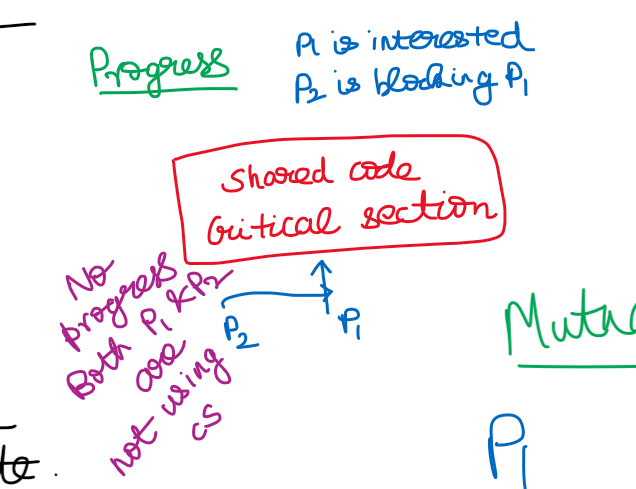 Progress
P1 is interested
P2 is blocking P1
Shared code
Critical section
No
progress
Both P1 & P2
are
not using
CS
P2
P1
P1